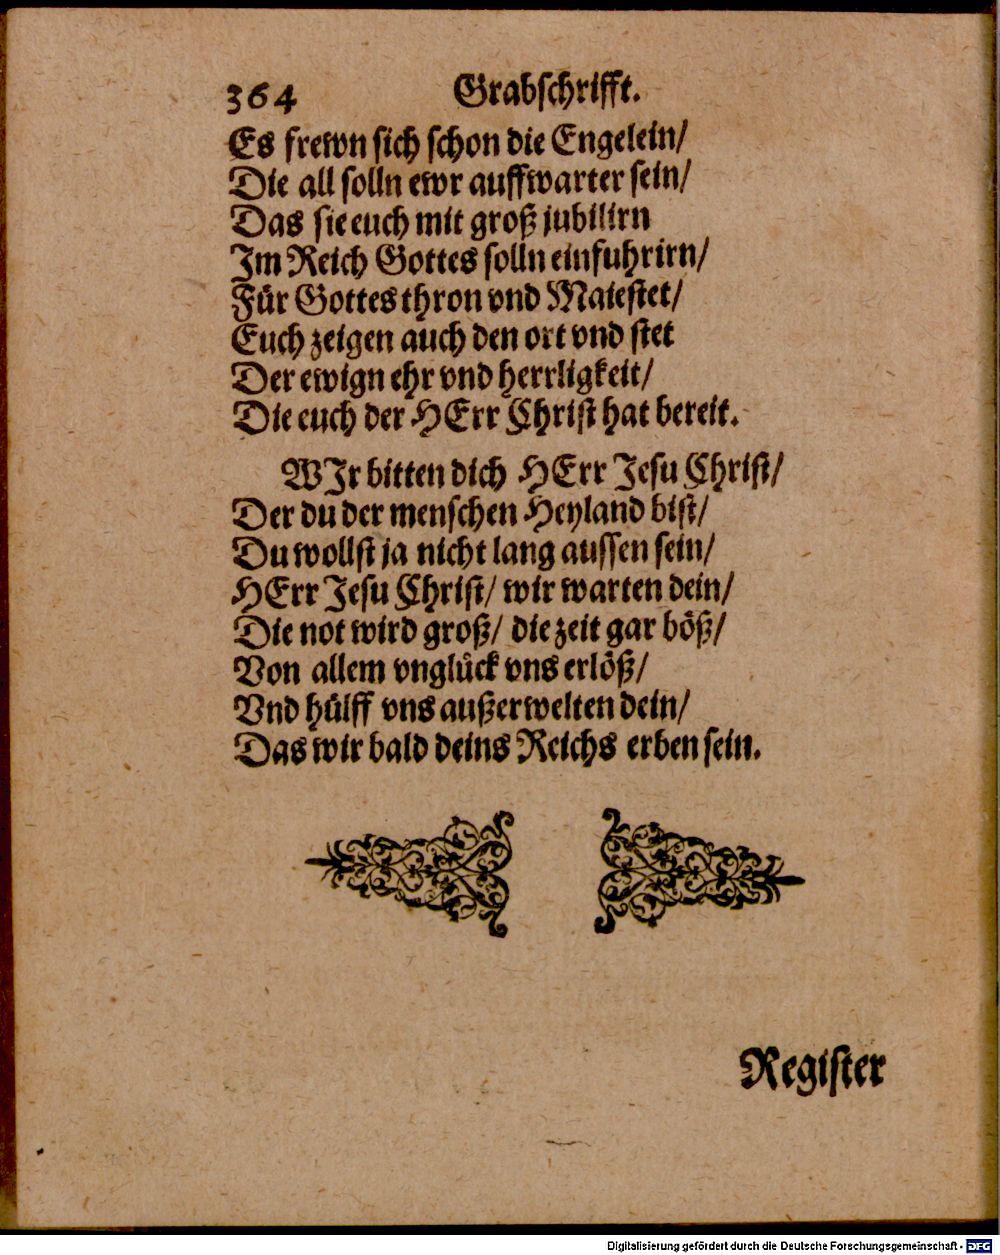 364 Grabschrifft.
Es frewn sich schon die Engelein/
Die all solln ewr auffwarter sein/
Das sie euch mit groß jubilirn
Im Reich Gottes solln einfuhrirn/
Für Gottes thron vnd Maiestet/
Euch zeigen auch den ort vnd stet
Der ewign ehr vnd herrligkeit/
Die euch der HErr Christ hat bereit.
WIr bitten dich HErr Jesu Christ/
Der du der menschen Heyland bist/
Du wollst ja nicht lang aussen sein/
HErr Jesu Christ/ wir warten dein/
Die not wird groß/ die zeit gar böß/
Von allem vnglück vns erlöß/
Vnd hülff vns außerwelten dein/
Das wir bald deins Reichs erben sein.
Register
Digitalisierung gefördert durch die Deutsche Forschungsgemeinschaft - DFG